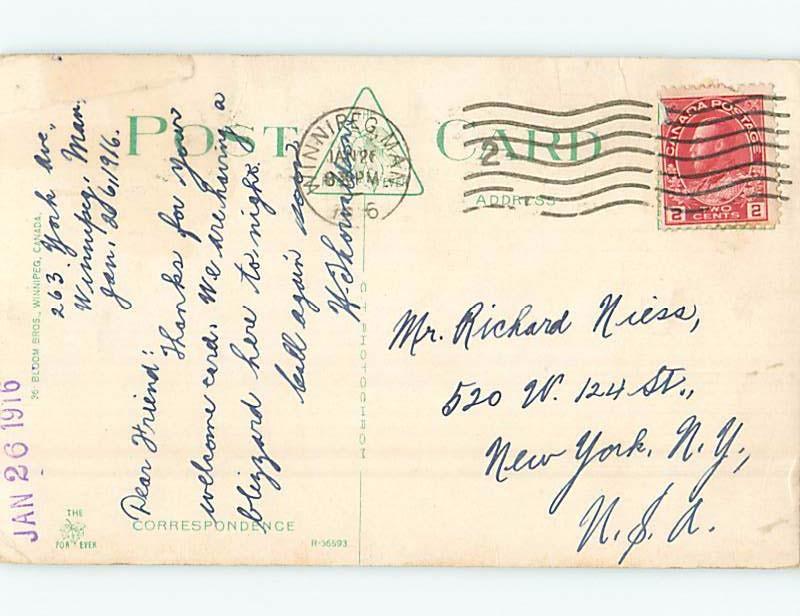 POST CARD
WINNIPEG, MAN
JAN 26
PM
2
CANADA POSTAGE
2 TWO CENTS 2
ADDRESS
263 York Ave.,
Winnipeg, Man.
Jan. 26, 1916.
Dear Friend:
Thanks for your
welcome card. We are having a
blizzard here to-night.
Call again soon,
Mr. Richard Niess,
520 W. 124 St.,
New York, N. Y.,
U. S. A.
36 BLOOM BROS., WINNIPEG, CANADA.
JAN 26 1916
THE
FOR EVER
CORRESPONDENCE
R-36593
CT PHOTOCHROM